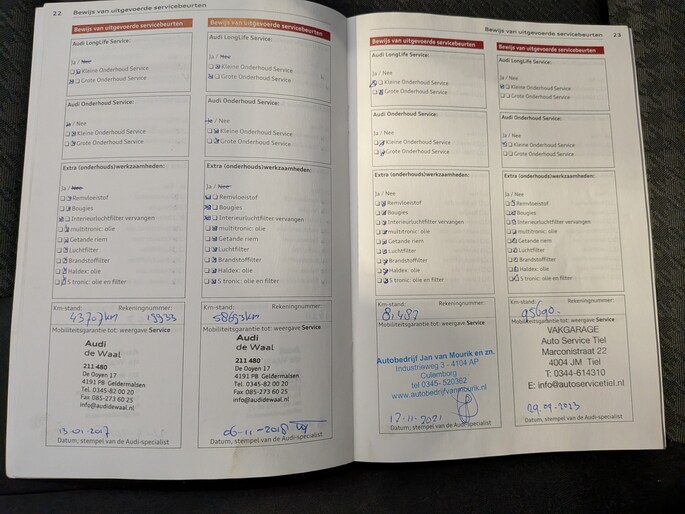 22 Bewijs van uitgevoerde servicebeurten
Bewijs van uitgevoerde servicebeurten
Audi LongLife Service:
Ja / Nee
Kleine Onderhoud Service
Grote Onderhoud Service
Audi Onderhoud Service:
Ja / Nee
Kleine Onderhoud Service
Grote Onderhoud Service
Extra (onderhouds)werkzaamheden:
Ja / Nee
Remvloeistof
Bougies
Interieurluchtfilter vervangen
multitronic: olie
Getande riem
Luchtfilter
Brandstoffilter
Haldex: olie
S tronic: olie en filter
Km-stand: Rekeningnummer:
43707km 19933
Mobiliteitsgarantie tot: weergave Service
Audi
de Waal
211 480
De Ooyen 17
4191 PB Geldermalsen
Tel. 0345-82 00 20
Fax 085-273 60 25
info@audidewaal.nl
13-01-2017
Datum, stempel van de Audi-specialist
Bewijs van uitgevoerde servicebeurten
Audi LongLife Service:
Ja / Nee
Kleine Onderhoud Service
Grote Onderhoud Service
Audi Onderhoud Service:
Ja / Nee
Kleine Onderhoud Service
Grote Onderhoud Service
Extra (onderhouds)werkzaamheden:
Ja / Nee
Remvloeistof
Bougies
Interieurluchtfilter vervangen
multitronic: olie
Getande riem
Luchtfilter
Brandstoffilter
Haldex: olie
S tronic: olie en filter
Km-stand: Rekeningnummer:
58693km
Mobiliteitsgarantie tot: weergave Service
Audi
de Waal
211 480
De Ooyen 17
4191 PB Geldermalsen
Tel. 0345-82 00 20
Fax 085-273 60 25
info@audidewaal.nl
06-11-2018
Datum, stempel van de Audi-specialist
Bewijs van uitgevoerde servicebeurten 23
Bewijs van uitgevoerde servicebeurten
Audi LongLife Service:
Ja / Nee
Kleine Onderhoud Service
Grote Onderhoud Service
Audi Onderhoud Service:
Ja / Nee
Kleine Onderhoud Service
Grote Onderhoud Service
Extra (onderhouds)werkzaamheden:
Ja / Nee
Remvloeistof
Bougies
Interieurluchtfilter vervangen
multitronic: olie
Getande riem
Luchtfilter
Brandstoffilter
Haldex: olie
S tronic: olie en filter
Km-stand: Rekeningnummer:
Mobiliteitsgarantie tot: weergave Service
Autobedrijf Jan van Mourik en zn.
Industrieweg 3 - 4104 AP
Culemborg
tel 0345- 520362
www.autobedrijfvanmourik.nl
17-11-2021
Datum, stempel van de Audi-specialist
Bewijs van uitgevoerde servicebeurten
Audi LongLife Service:
Ja / Nee
Kleine Onderhoud Service
Grote Onderhoud Service
Audi Onderhoud Service:
Ja / Nee
Kleine Onderhoud Service
Grote Onderhoud Service
Extra (onderhouds)werkzaamheden:
Ja / Nee
Remvloeistof
Bougies
Interieurluchtfilter vervangen
multitronic: olie
Getande riem
Luchtfilter
Brandstoffilter
Haldex: olie
S tronic: olie en filter
Km-stand: Rekeningnummer:
95690.
Mobiliteitsgarantie tot: weergave Service
VAKGARAGE
Auto Service Tiel
Marconistraat 22
4004 JM Tiel
T: 0344-614310
E: info@autoservicetiel.nl
29-09-2023
Datum, stempel van de Audi-specialist